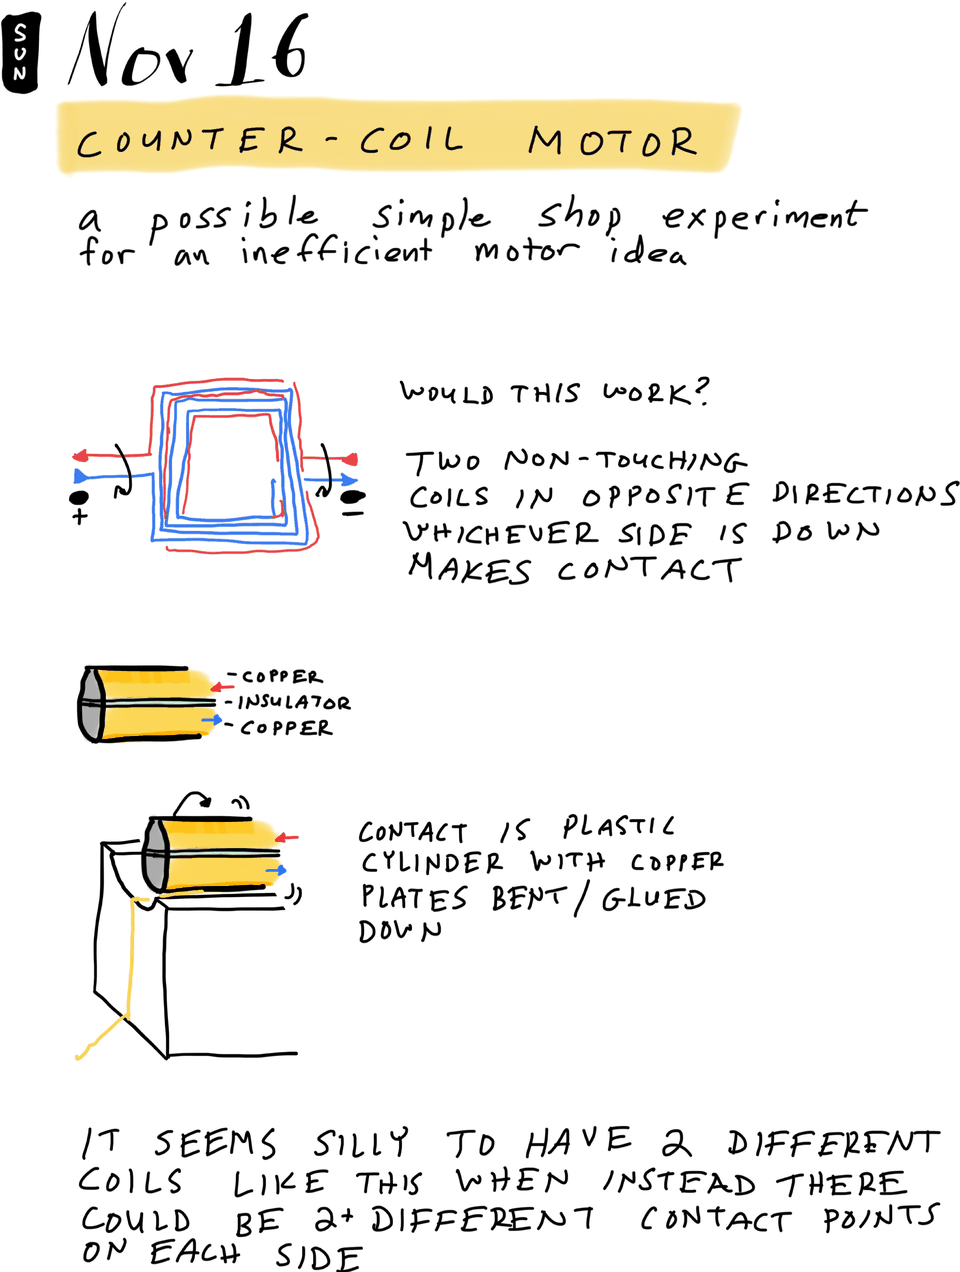 SUN
Nov 16
COUNTER-COIL MOTOR
a possible simple shop experiment
for an inefficient motor idea
WOULD THIS WORK?
TWO NON-TOUCHING
COILS IN OPPOSITE DIRECTIONS
WHICHEVER SIDE IS DOWN
MAKES CONTACT
+
-
-COPPER
-INSULATOR
-COPPER
CONTACT IS PLASTIC
CYLINDER WITH COPPER
PLATES BENT/GLUED
DOWN
IT SEEMS SILLY TO HAVE 2 DIFFERENT
COILS LIKE THIS WHEN INSTEAD THERE
COULD BE 2+ DIFFERENT CONTACT POINTS
ON EACH SIDE